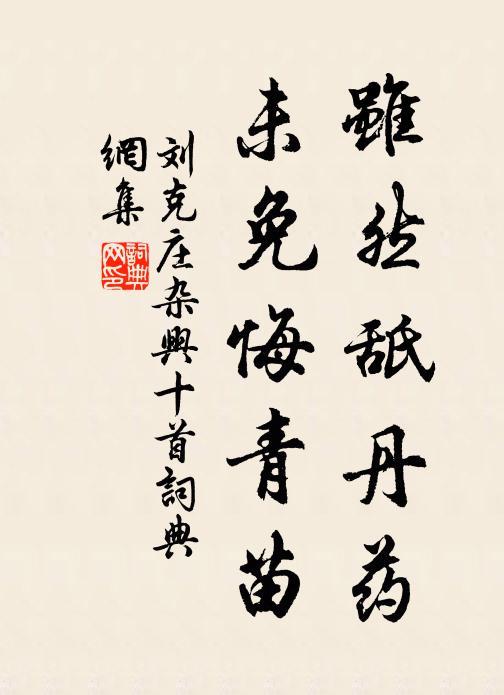 雖然舐丹药
未免悔青苗
刘克庄杂興十首詞典
網集
詞典
网印